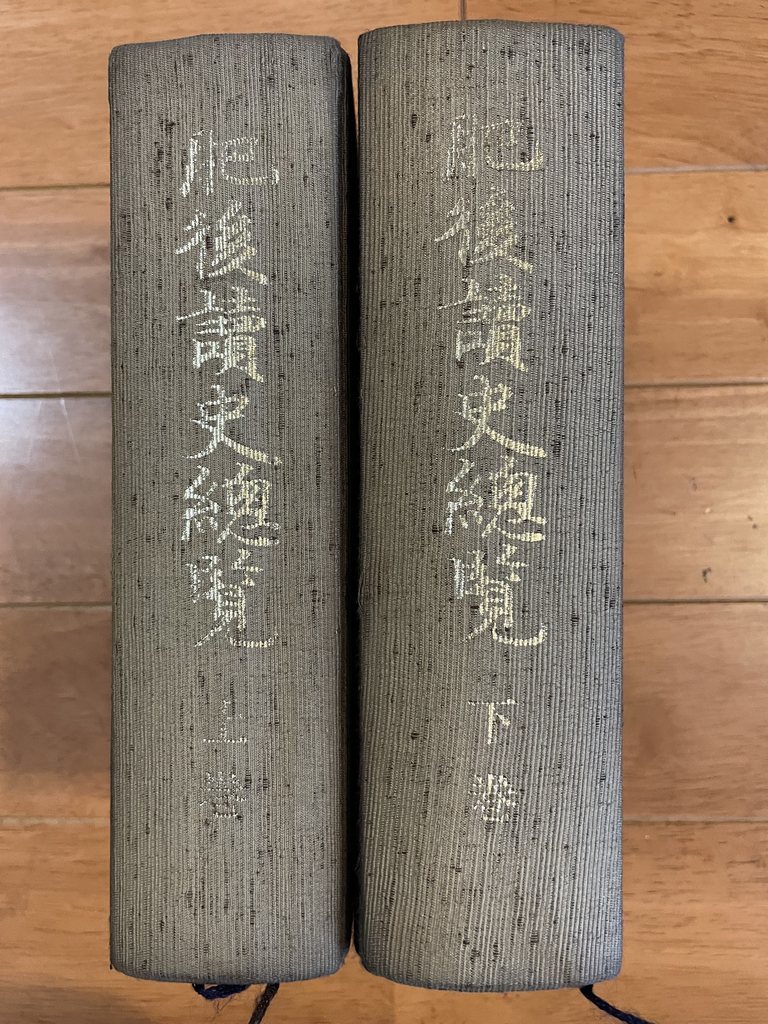 肥後讀史總覧
上巻
肥後讀史總覧
下巻